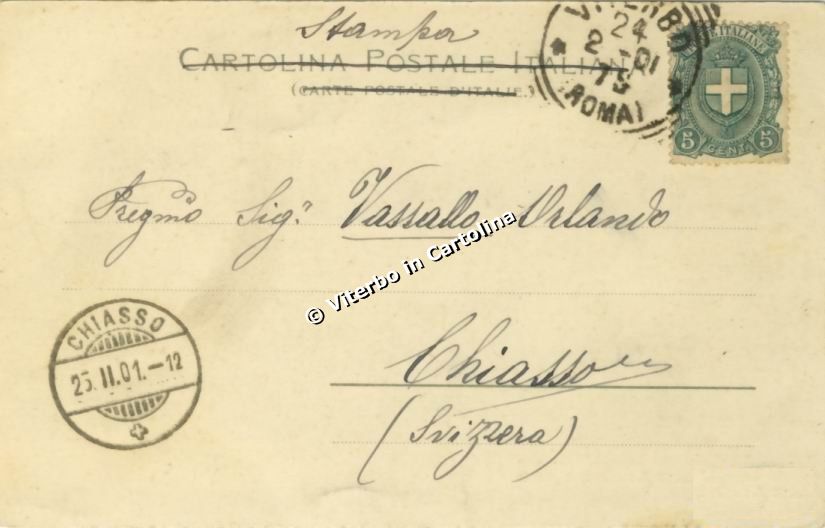 Stampa
CARTOLINA POSTALE ITALIANA
(CARTE POSTALE D'ITALIE)
VITERBO
24
2 - 01
(ROMA)
POSTE ITALIANE
5 CENT. 5
Pregmo Sigr. Vassallo Orlando
© Viterbo in Cartolina
Chiasso
(Svizzera)
CHIASSO
25.II.01.-12